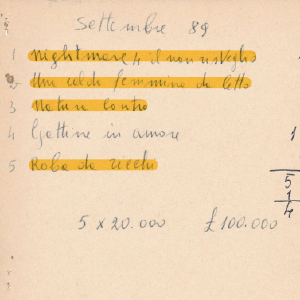 Settembre 89
1 Nightmare 4 il non risveglio
2 Una calda femmina da letto
3 Natura contro
4 Gattine in amore 1
5 Roba da ricchi
5
1
4
5 x 20.000 £100.000